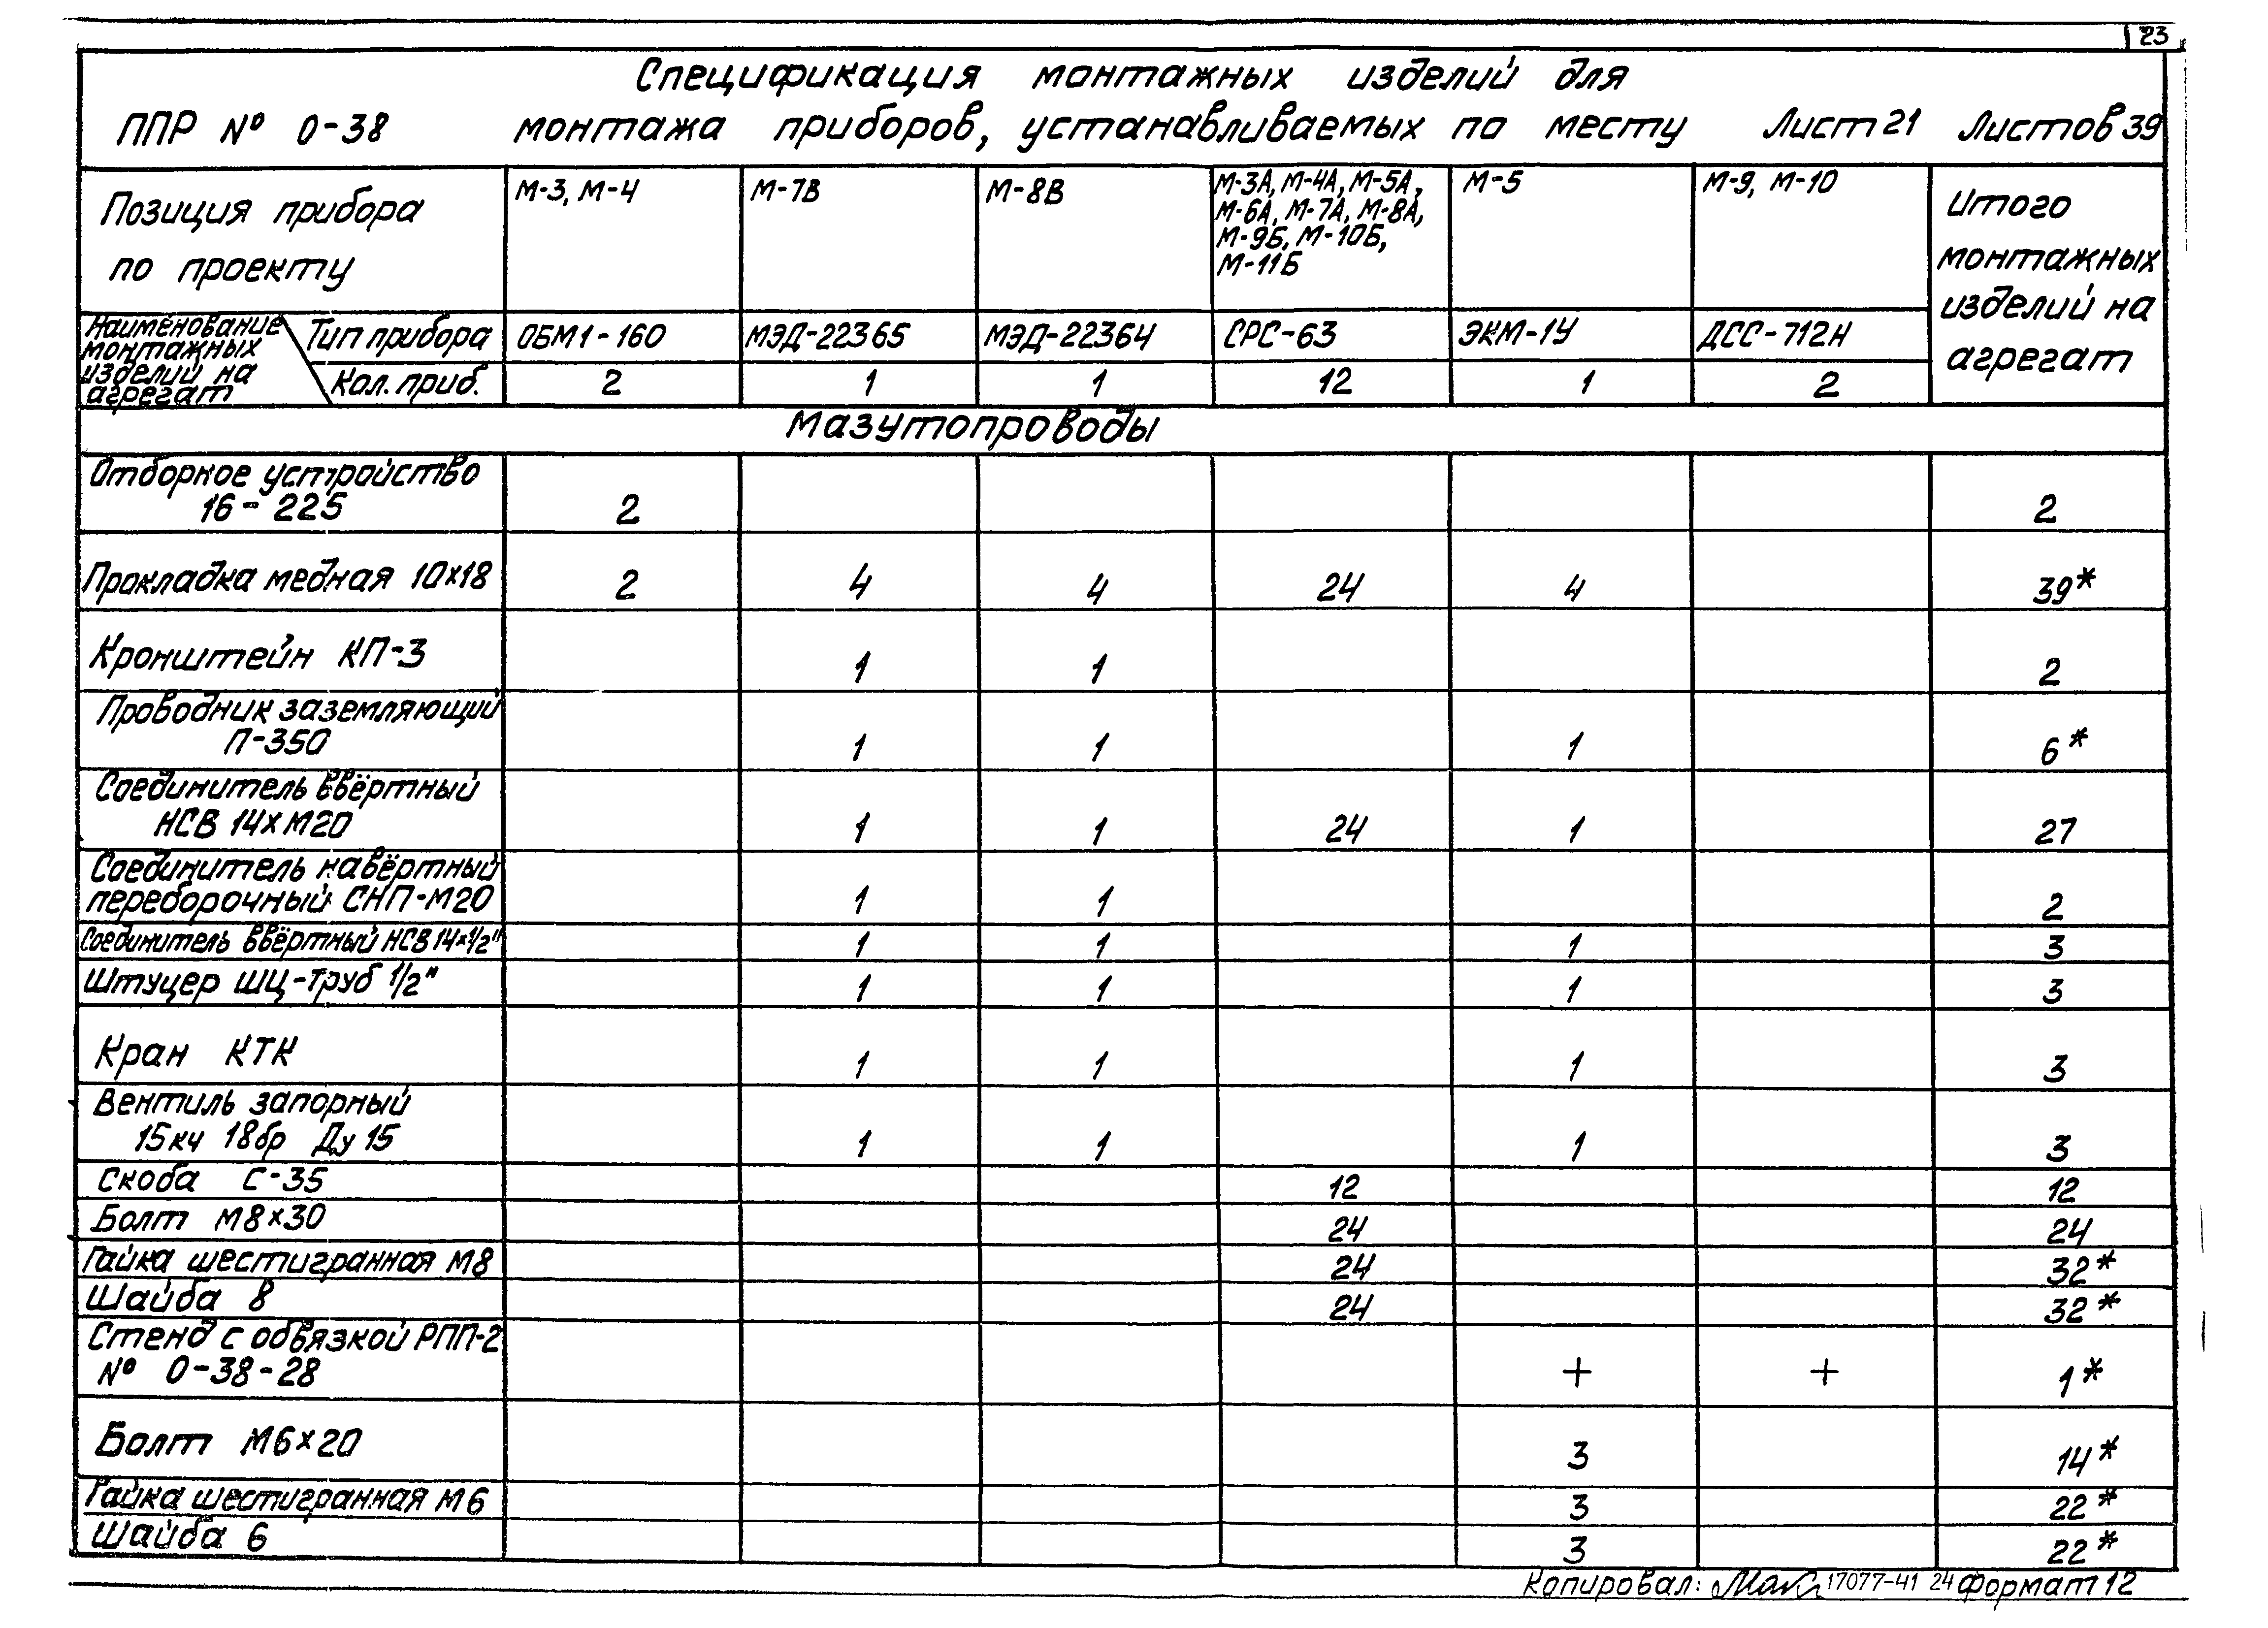 23
Спецификация монтажных изделий для
ППР № 0-38 монтажа приборов, устанавливаемых по месту Лист 21 Листов 39
Позиция прибора
по проекту
М-3, М-4
М-7В
М-8В
М-3А, М-4А, М-5А,
М-6А, М-7А, М-8А,
М-9Б, М-10Б,
М-11Б
М-5
М-9, М-10
Итого
монтажных
изделий на
агрегат
Наименование
монтажных
изделий на
агрегат
Тип прибора ОБМ1-160 МЭД-22365 МЭД-22364 СРС-63 ЭКМ-1У ДСС-712Н
Кол. приб. 2 1 1 12 1 2
Мазутопроводы
Отборное устройство
16-225 2 2
Прокладка медная 10х18 2 4 4 24 4 39*
Кронштейн КП-3 1 1 2
Проводник заземляющий
П-350 1 1 1 6*
Соединитель ввёртный
НСВ 14хМ20 1 1 24 1 27
Соединитель навёртный
переборочный СНП-М20 1 1 2
Соединитель ввёртный НСВ 14х1/2" 1 1 1 3
Штуцер ШЦ-труб 1/2" 1 1 1 3
Кран КТК 1 1 1 3
Вентиль запорный
15кч 18бр Ду 15 1 1 1 3
Скоба С-35 12 12
Болт М8х30 24 24
Гайка шестигранная М8 24 32*
Шайба 8 24 32*
Стенд с обвязкой РПП-2
№ 0-38-28 + + 1*
Болт М6х20 3 14*
Гайка шестигранная М6 3 22*
Шайба 6 3 22*
Копировал: 17077-41 24 Формат 12